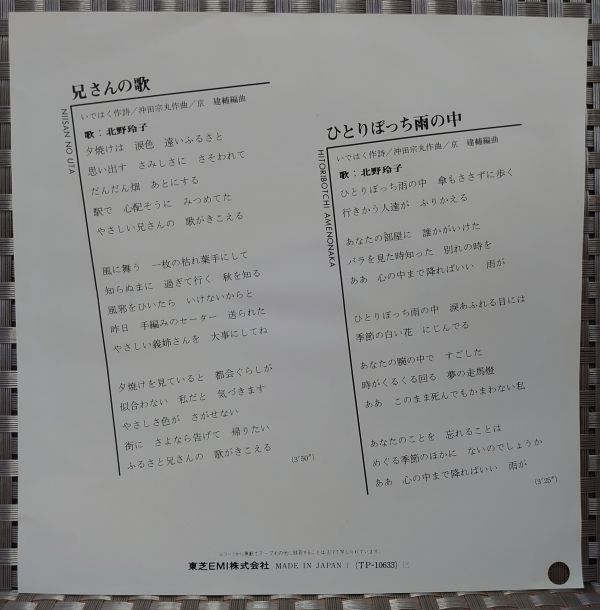 兄さんの歌
NIISAN NO UTA
いではく作詩／沖田宗丸作曲／京　建輔編曲
歌：北野玲子
夕焼けは　涙色　遠いふるさと
思い出す　さみしさに　さそわれて
だんだん畑　あとにする
駅で　心配そうに　みつめてた
やさしい兄さんの　歌がきこえる
風に舞う　一枚の枯れ葉手にして
知らぬまに　過ぎて行く　秋を知る
風邪をひいたら　いけないからと
昨日　手編みのセーター　送られた
やさしい義姉さんを　大事にしてね
夕焼けを見ていると　都会ぐらしが
似合わない　私だと　気づきます
やさしさ色が　さがせない
街に　さよなら告げて　帰りたい
ふるさと兄さんの　歌がきこえる
(3'50")
ひとりぼっち雨の中
HITORIBOTCHI AMENONAKA
いではく作詩／沖田宗丸作曲／京　建輔編曲
歌：北野玲子
ひとりぼっち雨の中　傘もささずに歩く
行きかう人達が　ふりかえる
あなたの部屋に　誰かがいけた
バラを見た時知った　別れの時を
ああ　心の中まで降ればいい　雨が
ひとりぼっち雨の中　涙あふれる目には
季節の白い花　にじんでる
あなたの腕の中で　すごした
時がくるくる回る　夢の走馬燈
ああ　このまま死んでもかまわない私
あなたのことを　忘れることは
めぐる季節のほかに　ないのでしょうか
ああ　心の中まで降ればいい　雨が
(3'25")
レコードから無断でテープその他に録音することは法律で禁じられています。
東芝EMI株式会社　MADE IN JAPAN　(TP-10633)